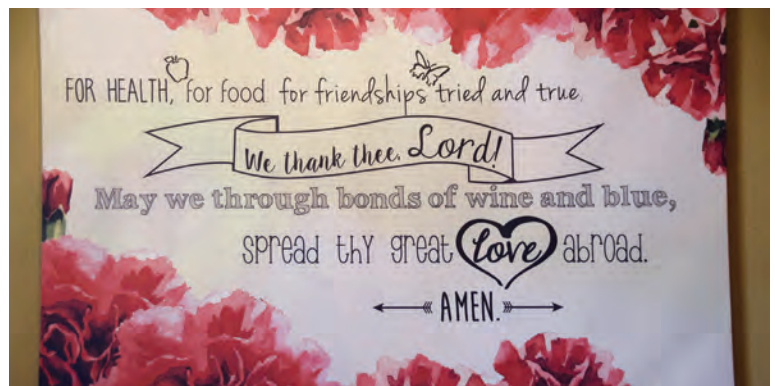 FOR HEALTH, for food for friendships tried and true,
We thank thee, Lord!
May we through bonds of wine and blue,
spread thy great love abroad.
AMEN.